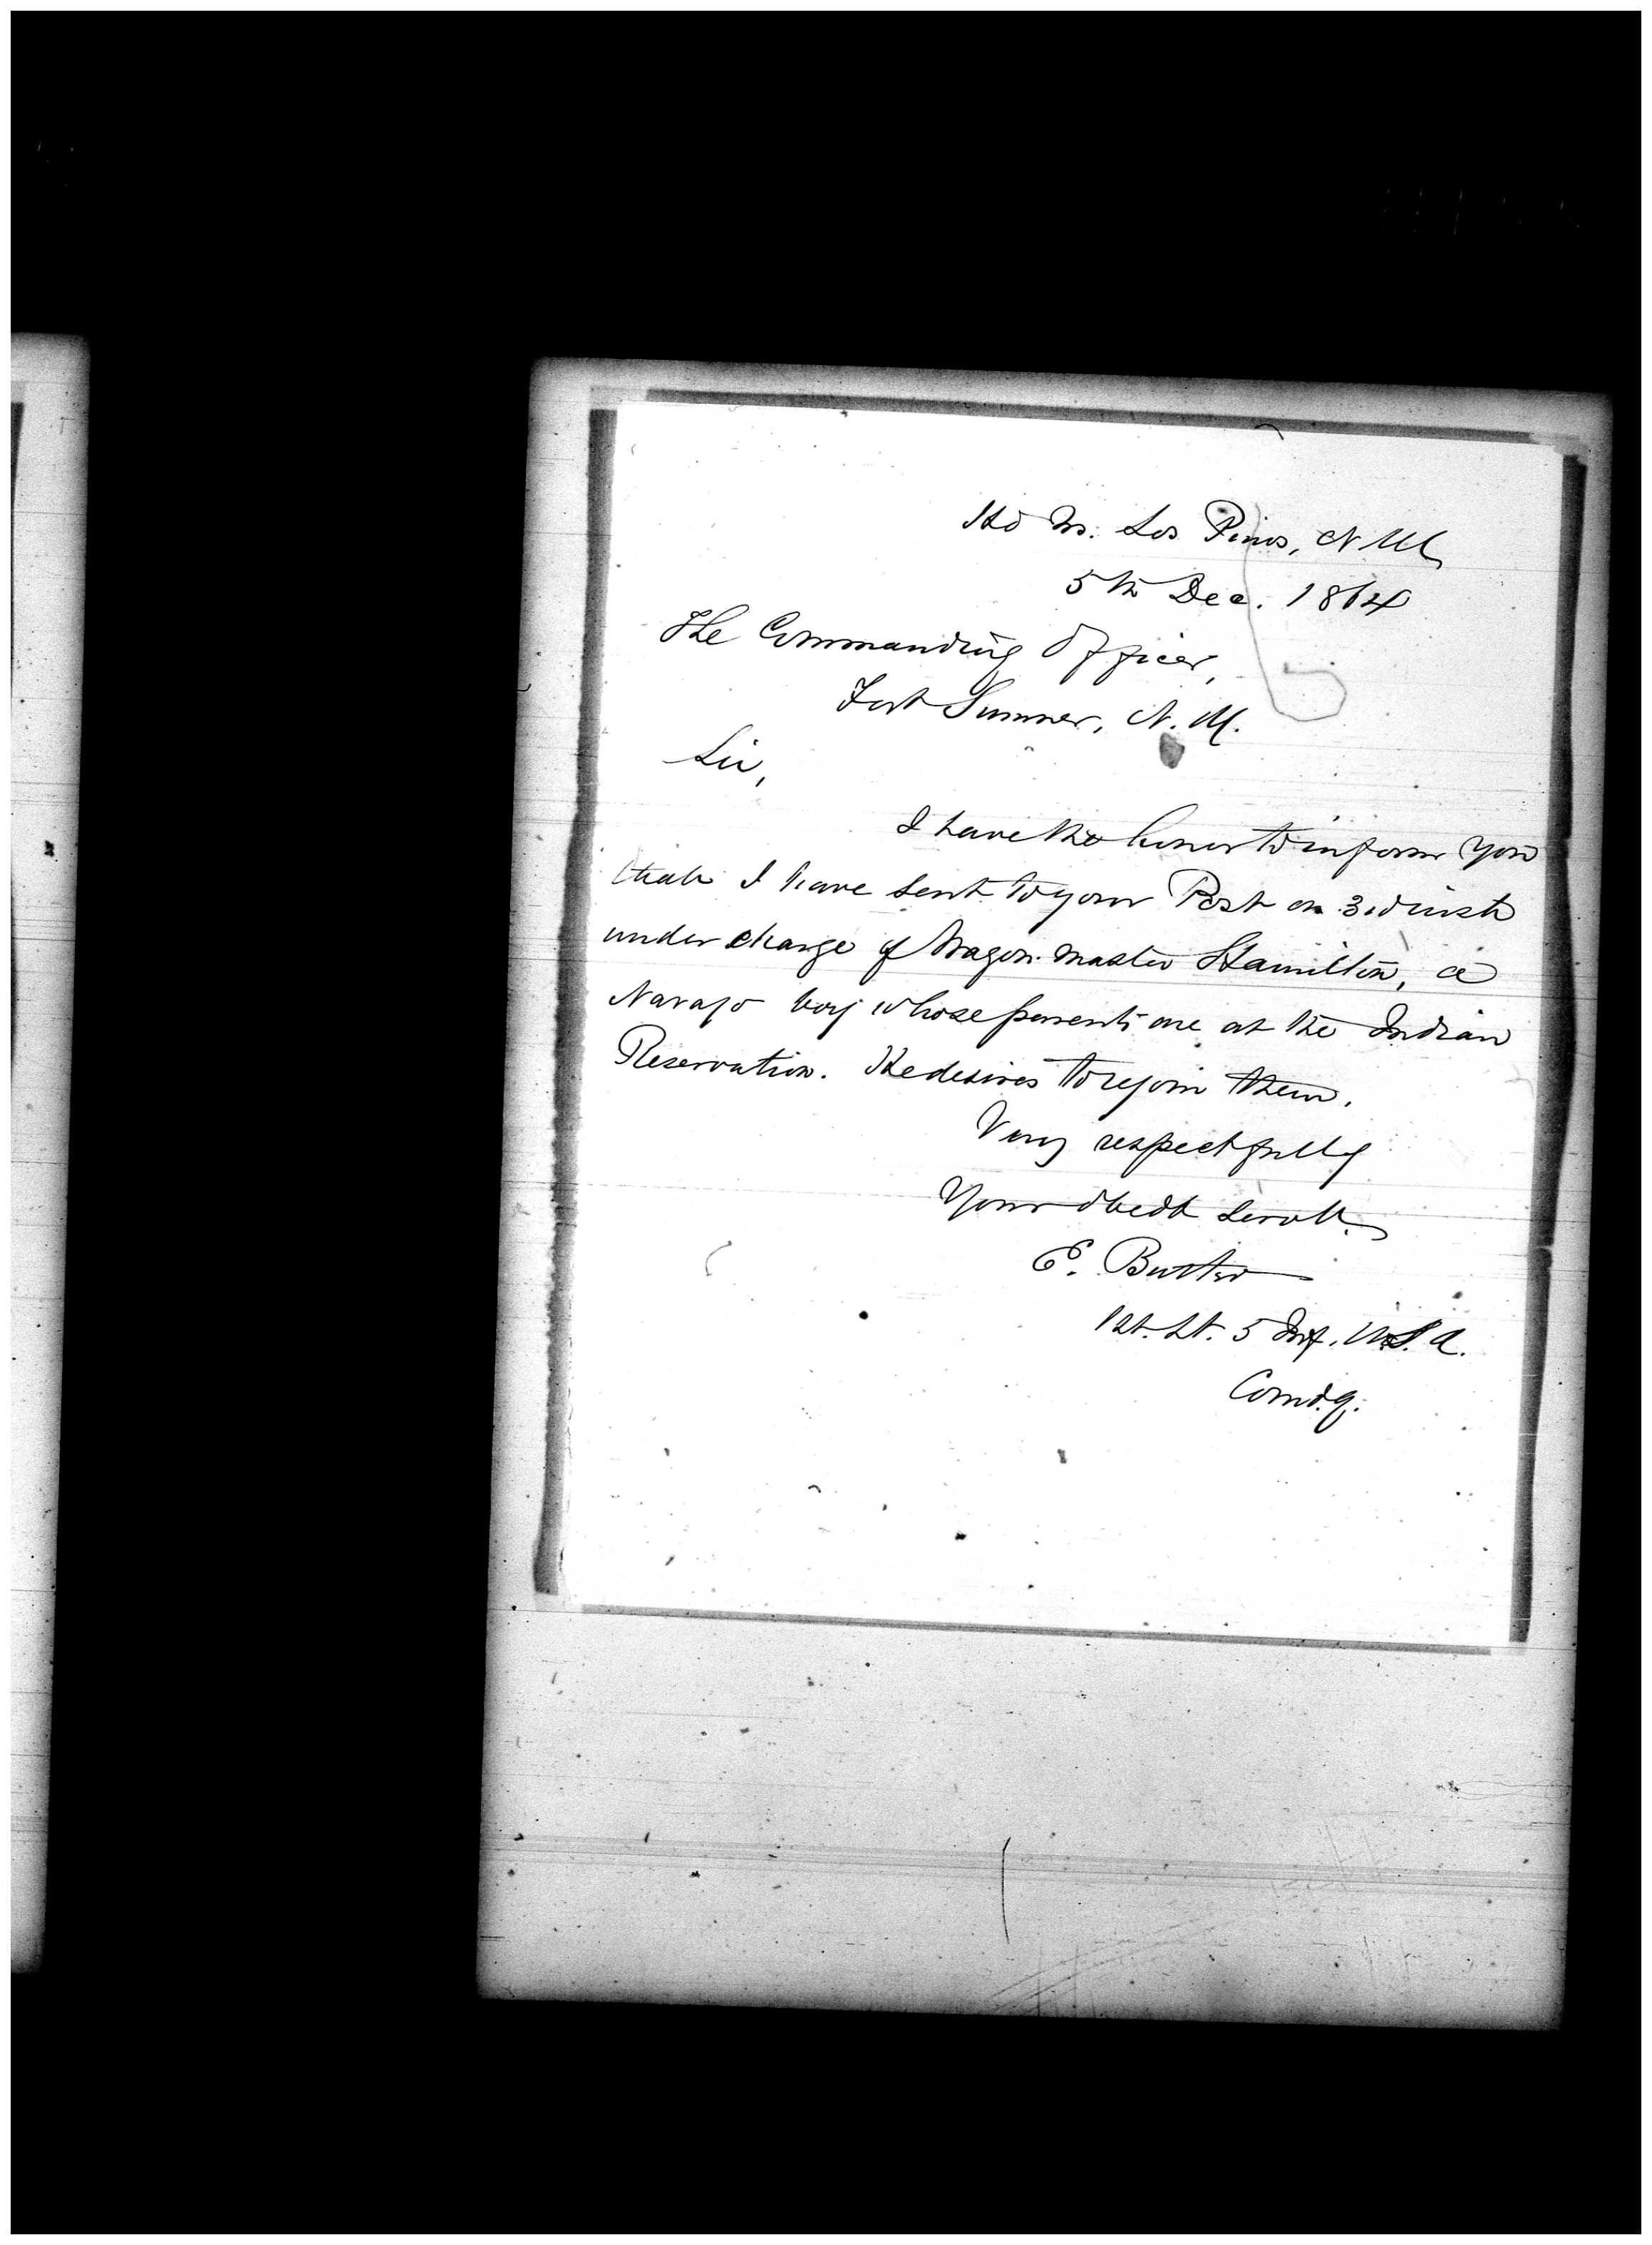 Hd Qrs. Los Pinos, N M
5th Dec. 1864
The Commanding Officer,
Fort Sumner, N. M.
Sir,
I have the honor to inform you
that I have sent to your Post on 3rd inst
under charge of Wagon Master Hamilton, a
Navajo boy whose parents are at the Indian
Reservation. He desires to rejoin them.
Very respectfully
Your obedt servt.
E. Butler
1st. Lt. 5 Inf. U.S.A.
Comd.g.